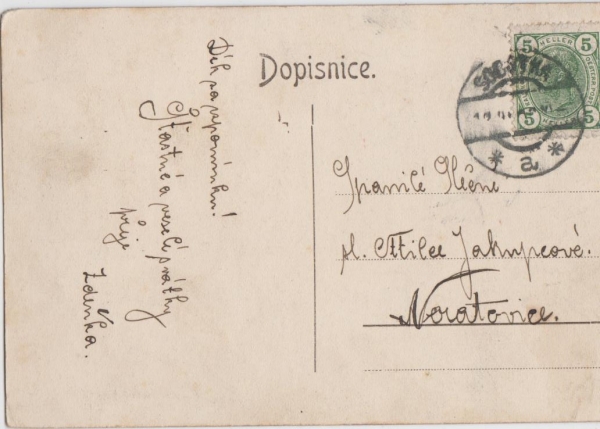 Dopisnice.
Dík za vzpomínku!
Šťastné a veselé svátky
přeje
Zdeňka.
5 HELLER 5
5 5
a
Spanilé Slečně
sl. Milce Jakupcové.
Neratovice.